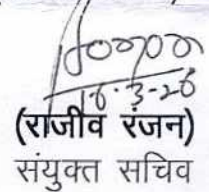 18.3.26
(राजीव रंजन)
संयुक्त सचिव